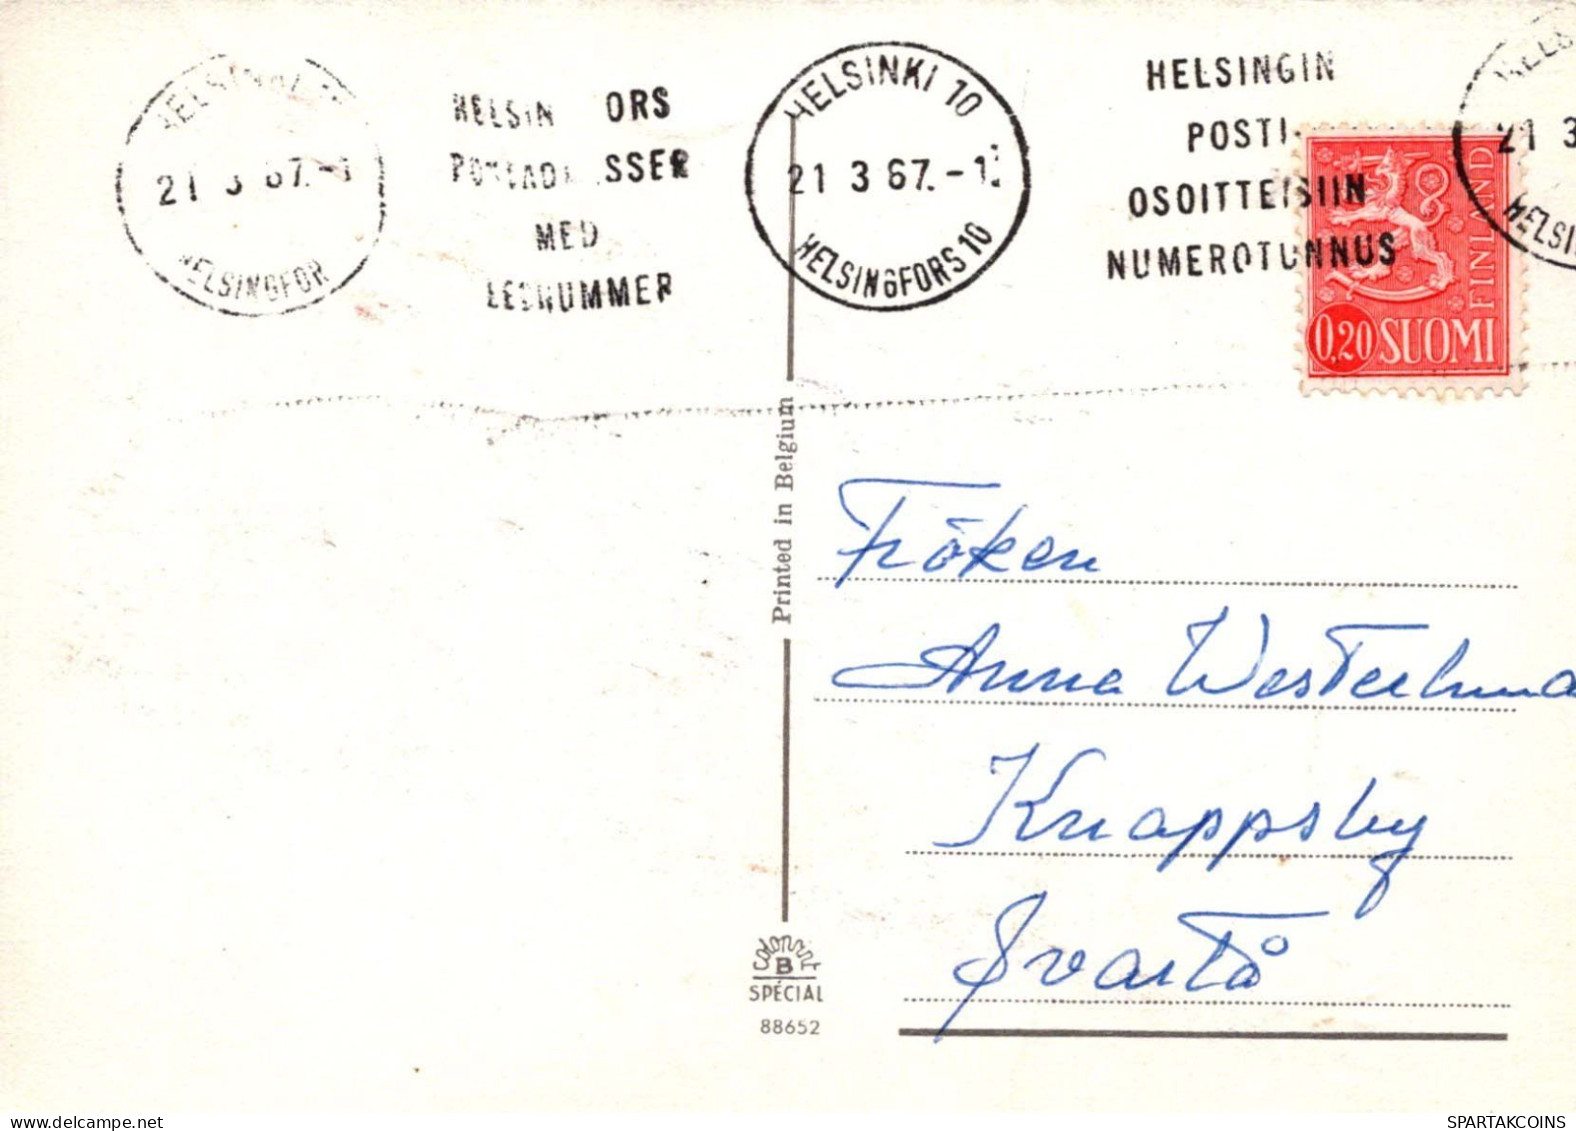 HELSINKI 10
21 3 67.-1
HELSINGFOR
HELSIN ORS
POSTADR SSER
MED
LEDNUMMER
HELSINKI 10
21 3 67.-1
HELSINGFORS 10
HELSINGIN
POSTI-
OSOITTEISIIN
NUMEROTUNNUS
HELS
21 3
HELSI
FINLAND
0,20 SUOMI
Printed in Belgium
Fröken
Anna Westerlund
Knappsby
Svartå
colorprint
B
SPÉCIAL
88652
SPARTAKCOINS